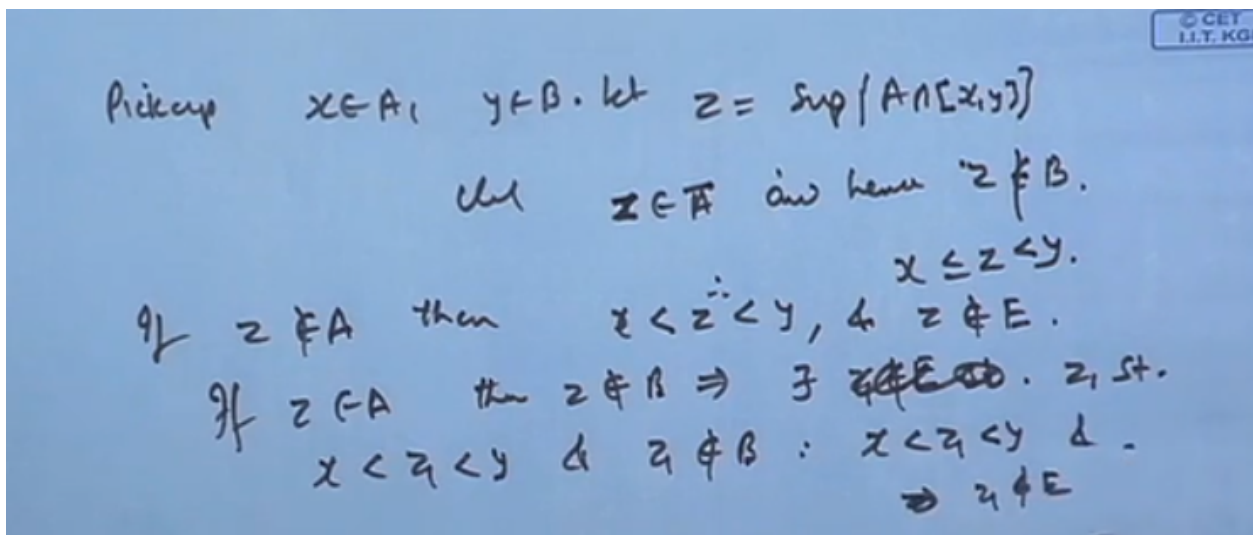 © CET
I.I.T. KG
Pickup x∈A, y∈B. let z = Sup(A∩[x,y])
z∈Ā and hence z∉B.
x ≤ z < y.
If z∉A then x < z < y, & z∉E.
If z∈A then z∉B ⇒ ∃ z₁ st.
x < z₁ < y & z₁∉B ∴ x < z₁ < y &
⇒ z₁∉E